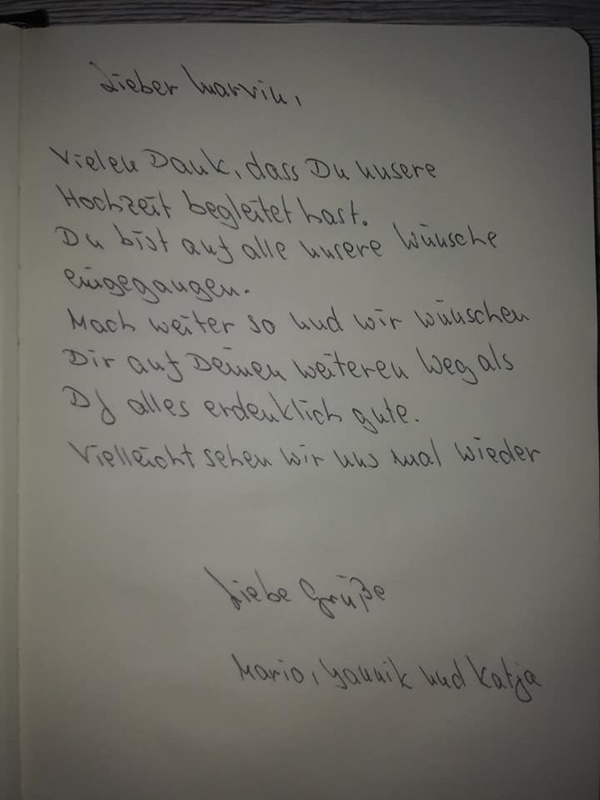 Lieber Marvin,
Vielen Dank, dass Du unsere
Hochzeit begleitet hast.
Du bist auf alle unsere Wünsche
eingegangen.
Mach weiter so und wir wünschen
Dir auf Deinen weiteren Weg als
DJ alles erdenklich gute.
Vielleicht sehen wir uns mal wieder
Liebe Grüße
Mario, Yannik und Katja